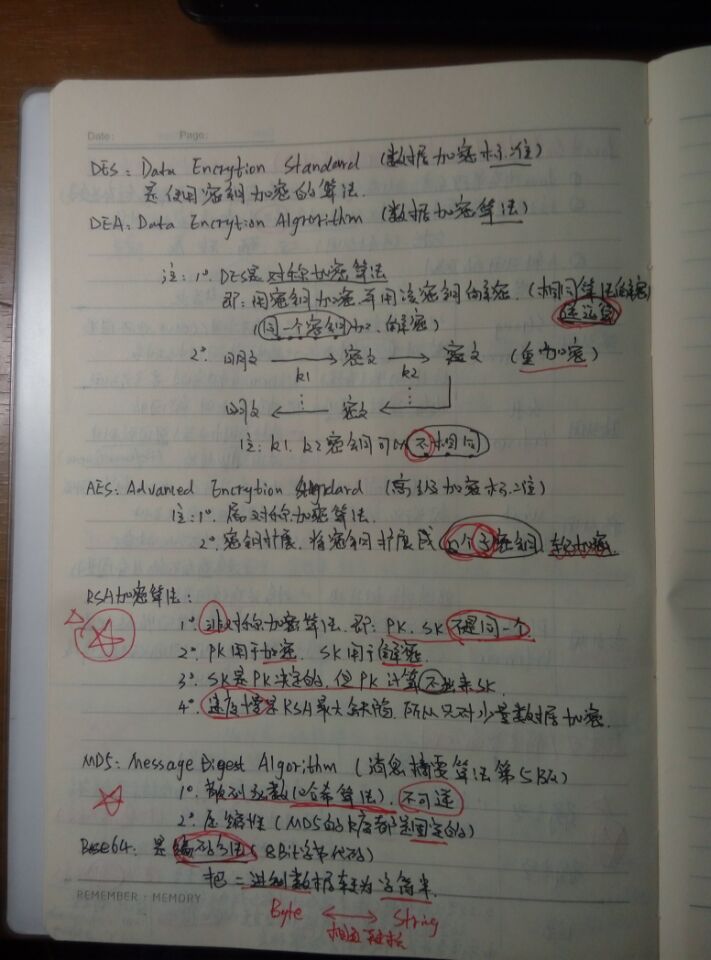 Date: Page:
DES: Data Encrytion Standard (数据加密标准)
是使用密钥加密的算法.
DEA: Data Encrytion Algrorithm (数据加密算法)
注: 1°. DES是对称加密算法
即: 用密钥加密, 并用该密钥解密. (相同算法解密)
逆运算
(同一个密钥加、解密)
2°. 明文 → 密文 → 密文 (重加密)
k1 k2
明文 ← 密文 ←
注: k1. k2 密钥可以不相同
AES: Advanced Encrytion Standard (高级加密标准)
注: 1°. 属对称加密算法.
2°. 密钥扩展. 将密钥扩展成n个子密钥, 轮加密.
RSA加密算法:
1°. 非对称加密算法. 即: PK. SK 不是同一个
2°. PK用于加密. SK用于解密.
3°. SK是PK决定的, 但PK计算不出来SK.
4°. 速度慢是RSA最大缺陷, 所以只对少量数据加密.
MD5: Message Digest Algorithm (消息摘要算法第5版)
1°. 散列函数(哈希算法), 不可逆
2°. 压缩性 (MD5的长度都是固定的)
Base64: 是编码方法 (8Bit字节代码)
把二进制数据转为字符串.
REMEMBER · MEMORY
Byte ↔ String
相互转换